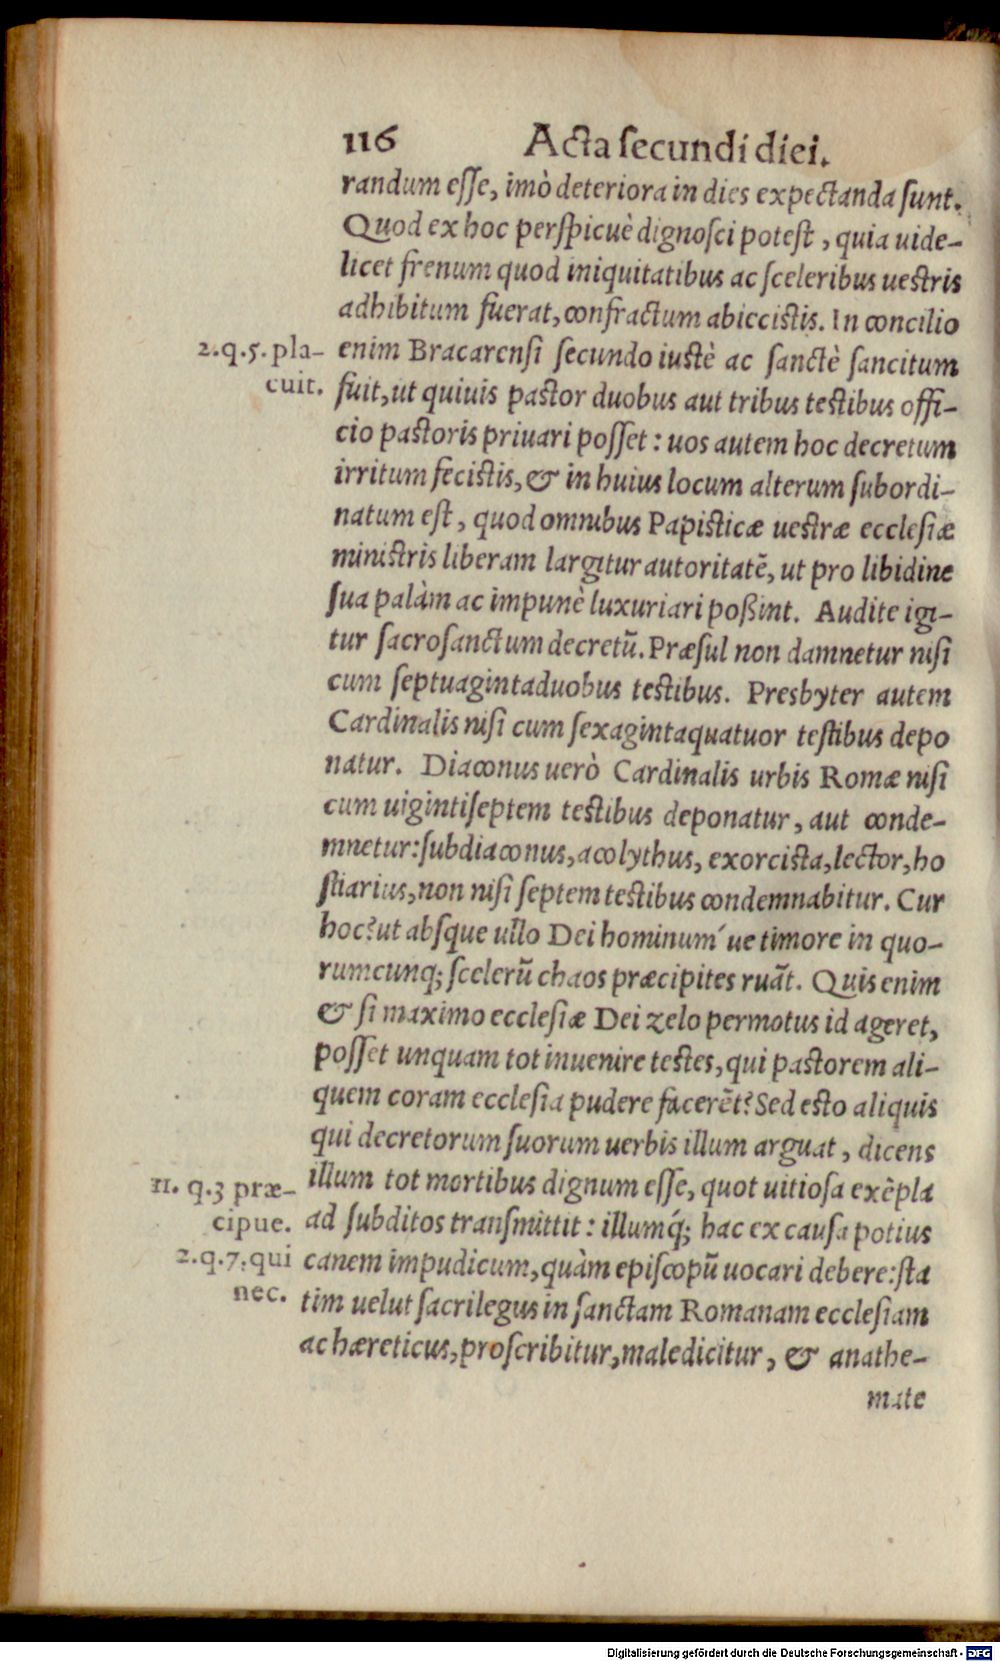 116 Acta ſecundi diei.
randum eſſe, imò deteriora in dies expectanda ſunt.
Quod ex hoc perſpicuè dignoſci poteſt, quia uide-
licet frenum quod iniquitatibus ac ſceleribus ueſtris
adhibitum fuerat, confractum abieciſtis. In concilio
2.q.5. pla-
cuit.
enim Bracarenſi ſecundo iuſtè ac ſanctè ſancitum
fuit, ut quiuis paſtor duobus aut tribus teſtibus offi-
cio paſtoris priuari poſſet: uos autem hoc decretum
irritum feciſtis, & in huius locum alterum ſubordi-
natum eſt, quod omnibus Papiſticæ ueſtræ eccleſiæ
miniſtris liberam largitur autoritatē, ut pro libidine
ſua palàm ac impunè luxuriari poßint. Audite igi-
tur ſacroſanctum decretū. Præſul non damnetur niſi
cum ſeptuagintaduobus teſtibus. Presbyter autem
Cardinalis niſi cum ſexagintaquatuor teſtibus depo
natur. Diaconus uerò Cardinalis urbis Romæ niſi
cum uigintiſeptem teſtibus deponatur, aut conde-
mnetur: ſubdiaconus, acolythus, exorciſta, lector, ho
ſtiarius, non niſi ſeptem teſtibus condemnabitur. Cur
hoc? ut abſque ullo Dei hominum´ ue timore in quo-
rumcunq; ſcelerū chaos præcipites ruāt. Quis enim
& ſi maximo eccleſiæ Dei zelo permotus id ageret,
poſſet unquam tot inuenire teſtes, qui paſtorem ali-
quem coram eccleſia pudere facerēt? Sed eſto aliquis
qui decretorum ſuorum uerbis illum arguat, dicens
11. q.3 præ-
cipue.
illum tot mortibus dignum eſſe, quot uitioſa exēpla
ad ſubditos tranſmittit: illumq́; hac ex cauſa potius
2.q.7. qui
nec.
canem impudicum, quàm epiſcopū uocari debere: ſta
tim uelut ſacrilegus in ſanctam Romanam eccleſiam
ac hæreticus, proſcribitur, maledicitur, & anathe-
mate
Digitalisierung gefördert durch die Deutsche Forschungsgemeinschaft - DFG